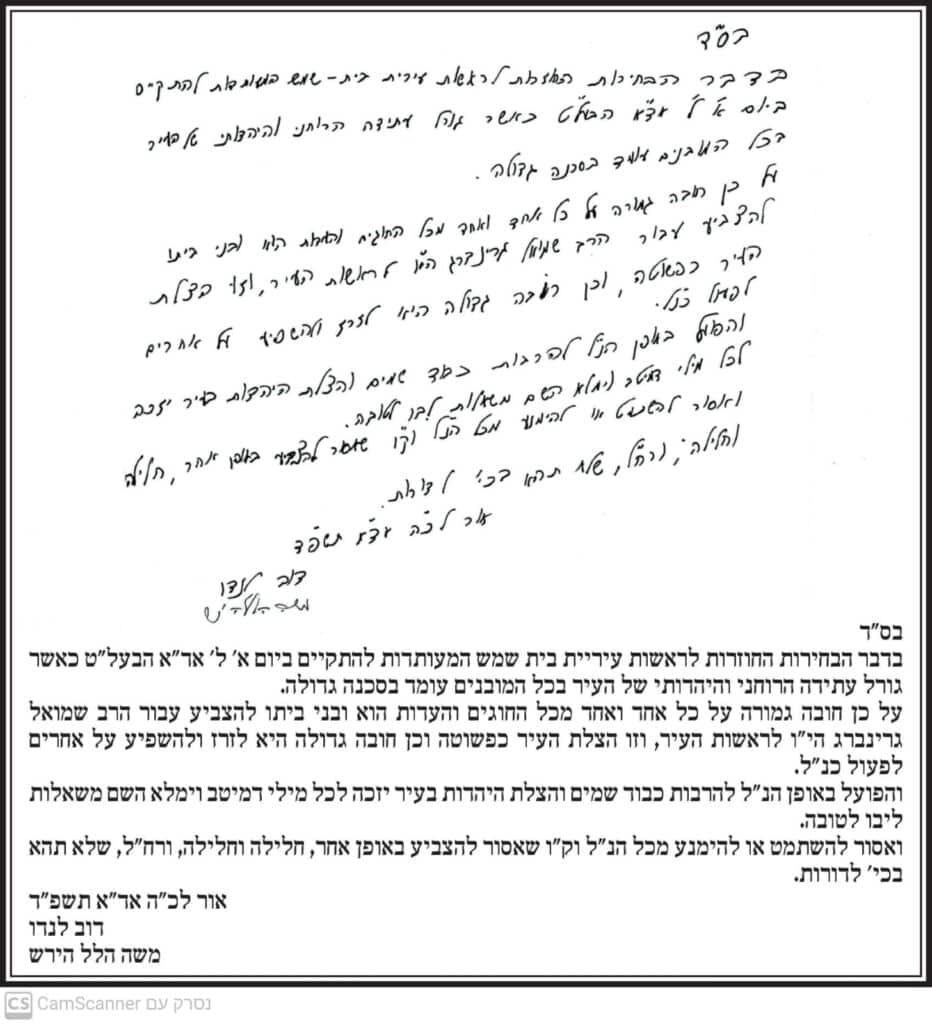 בס"ד
בדבר הבחירות החוזרות לראשות עירית בית-שמש המעותדות להתקיים
ביום א' ל' אד"א הבעל"ט כאשר גורל עתידה הרוחני והיהדותי של העיר
בכל המובנים עומד בסכנה גדולה.
על כן חובה גמורה על כל אחד ואחד מכל החוגים והעדות הוא ובני ביתו
להצביע עבור הרב שמואל גרינברג הי"ו לראשות העיר, וזו הצלת
העיר כפשוטה, וכן חובה גדולה היא לזרז ולהשפיע על אחרים
לפעול כנ"ל.
והפועל באופן הנ"ל להרבות כבוד שמים והצלת היהדות בעיר יזכה
לכל מילי דמיטב וימלא השם משאלות ליבו לטובה.
ואסור להשתמט או להימנע מכל הנ"ל וק"ו שאסור להצביע באופן אחר, חלילה
וחלילה, ורח"ל, שלא תהא בכי' לדורות.
אור לכ"ה אד"א תשפ"ד
דוב לנדו
משה הלל הירש
בס"ד
בדבר הבחירות החוזרות לראשות עיריית בית שמש המעותדות להתקיים ביום א' ל' אד"א הבעל"ט כאשר
גורל עתידה הרוחני והיהדותי של העיר בכל המובנים עומד בסכנה גדולה.
על כן חובה גמורה על כל אחד ואחד מכל החוגים והעדות הוא ובני ביתו להצביע עבור הרב שמואל
גרינברג הי"ו לראשות העיר, וזו הצלת העיר כפשוטה וכן חובה גדולה היא לזרז ולהשפיע על אחרים
לפעול כנ"ל.
והפועל באופן הנ"ל להרבות כבוד שמים והצלת היהדות בעיר יזכה לכל מילי דמיטב וימלא השם משאלות
ליבו לטובה.
ואסור להשתמט או להימנע מכל הנ"ל וק"ו שאסור להצביע באופן אחר, חלילה וחלילה, ורח"ל, שלא תהא
בכי' לדורות.
אור לכ"ה אד"א תשפ"ד
דוב לנדו
משה הלל הירש
CS CamScanner נסרק עם